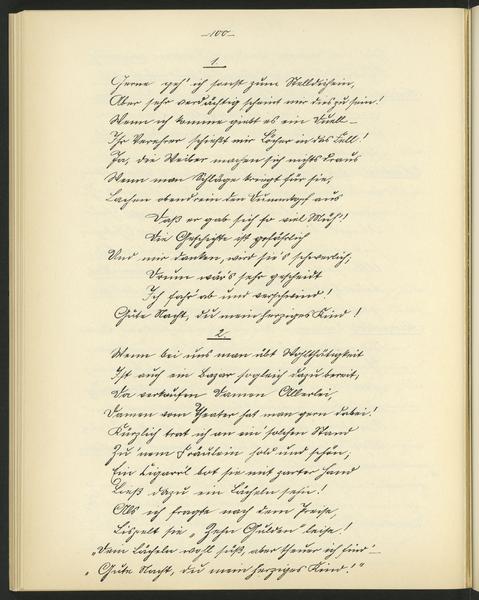 —100—
1.
Gerne geh' ich sonst zum Stelldichein,
Aber sehr verdächtig scheint mir dies zu sein!
Wenn ich komme giebt es ein Duell —
Ihr Verehrer schießt mir Löcher in das Fell!
Ja, die Weiber machen sich nichts draus
Wenn man Schläge kriegt für sie,
Lachen obendrein den Dummkopf aus
Daß er gab sich so viel Müh'!
Die Geschichte ist gefährlich
Und mir danken, wird sie's schwerlich,
Drum wär's sehr gescheidt
Ich fahr' ab und verschwind!
Gute Nacht, du mein herziges Kind!
2.
Wenn bei uns man übt Wohlthätigkeit
Ist auch ein Bazar sogleich dazu bereit,
Da verkaufen Damen Allerlei,
Damen vom Theater hat man gern dabei!
Kürzlich trat ich an ein' solchen Stand
Zu 'nem Fräulein hold und schön,
Ein Cigarrl bot sie mit zarter Hand
Ließ dazu ein Lächeln sehn!
Als ich fragte nach dem Preise,
Lispelt sie „Zehn Gulden" leise!
„Dein Lächeln wohl süß, aber theuer ich find' —
„Gute Nacht, du mein herziges Kind!"